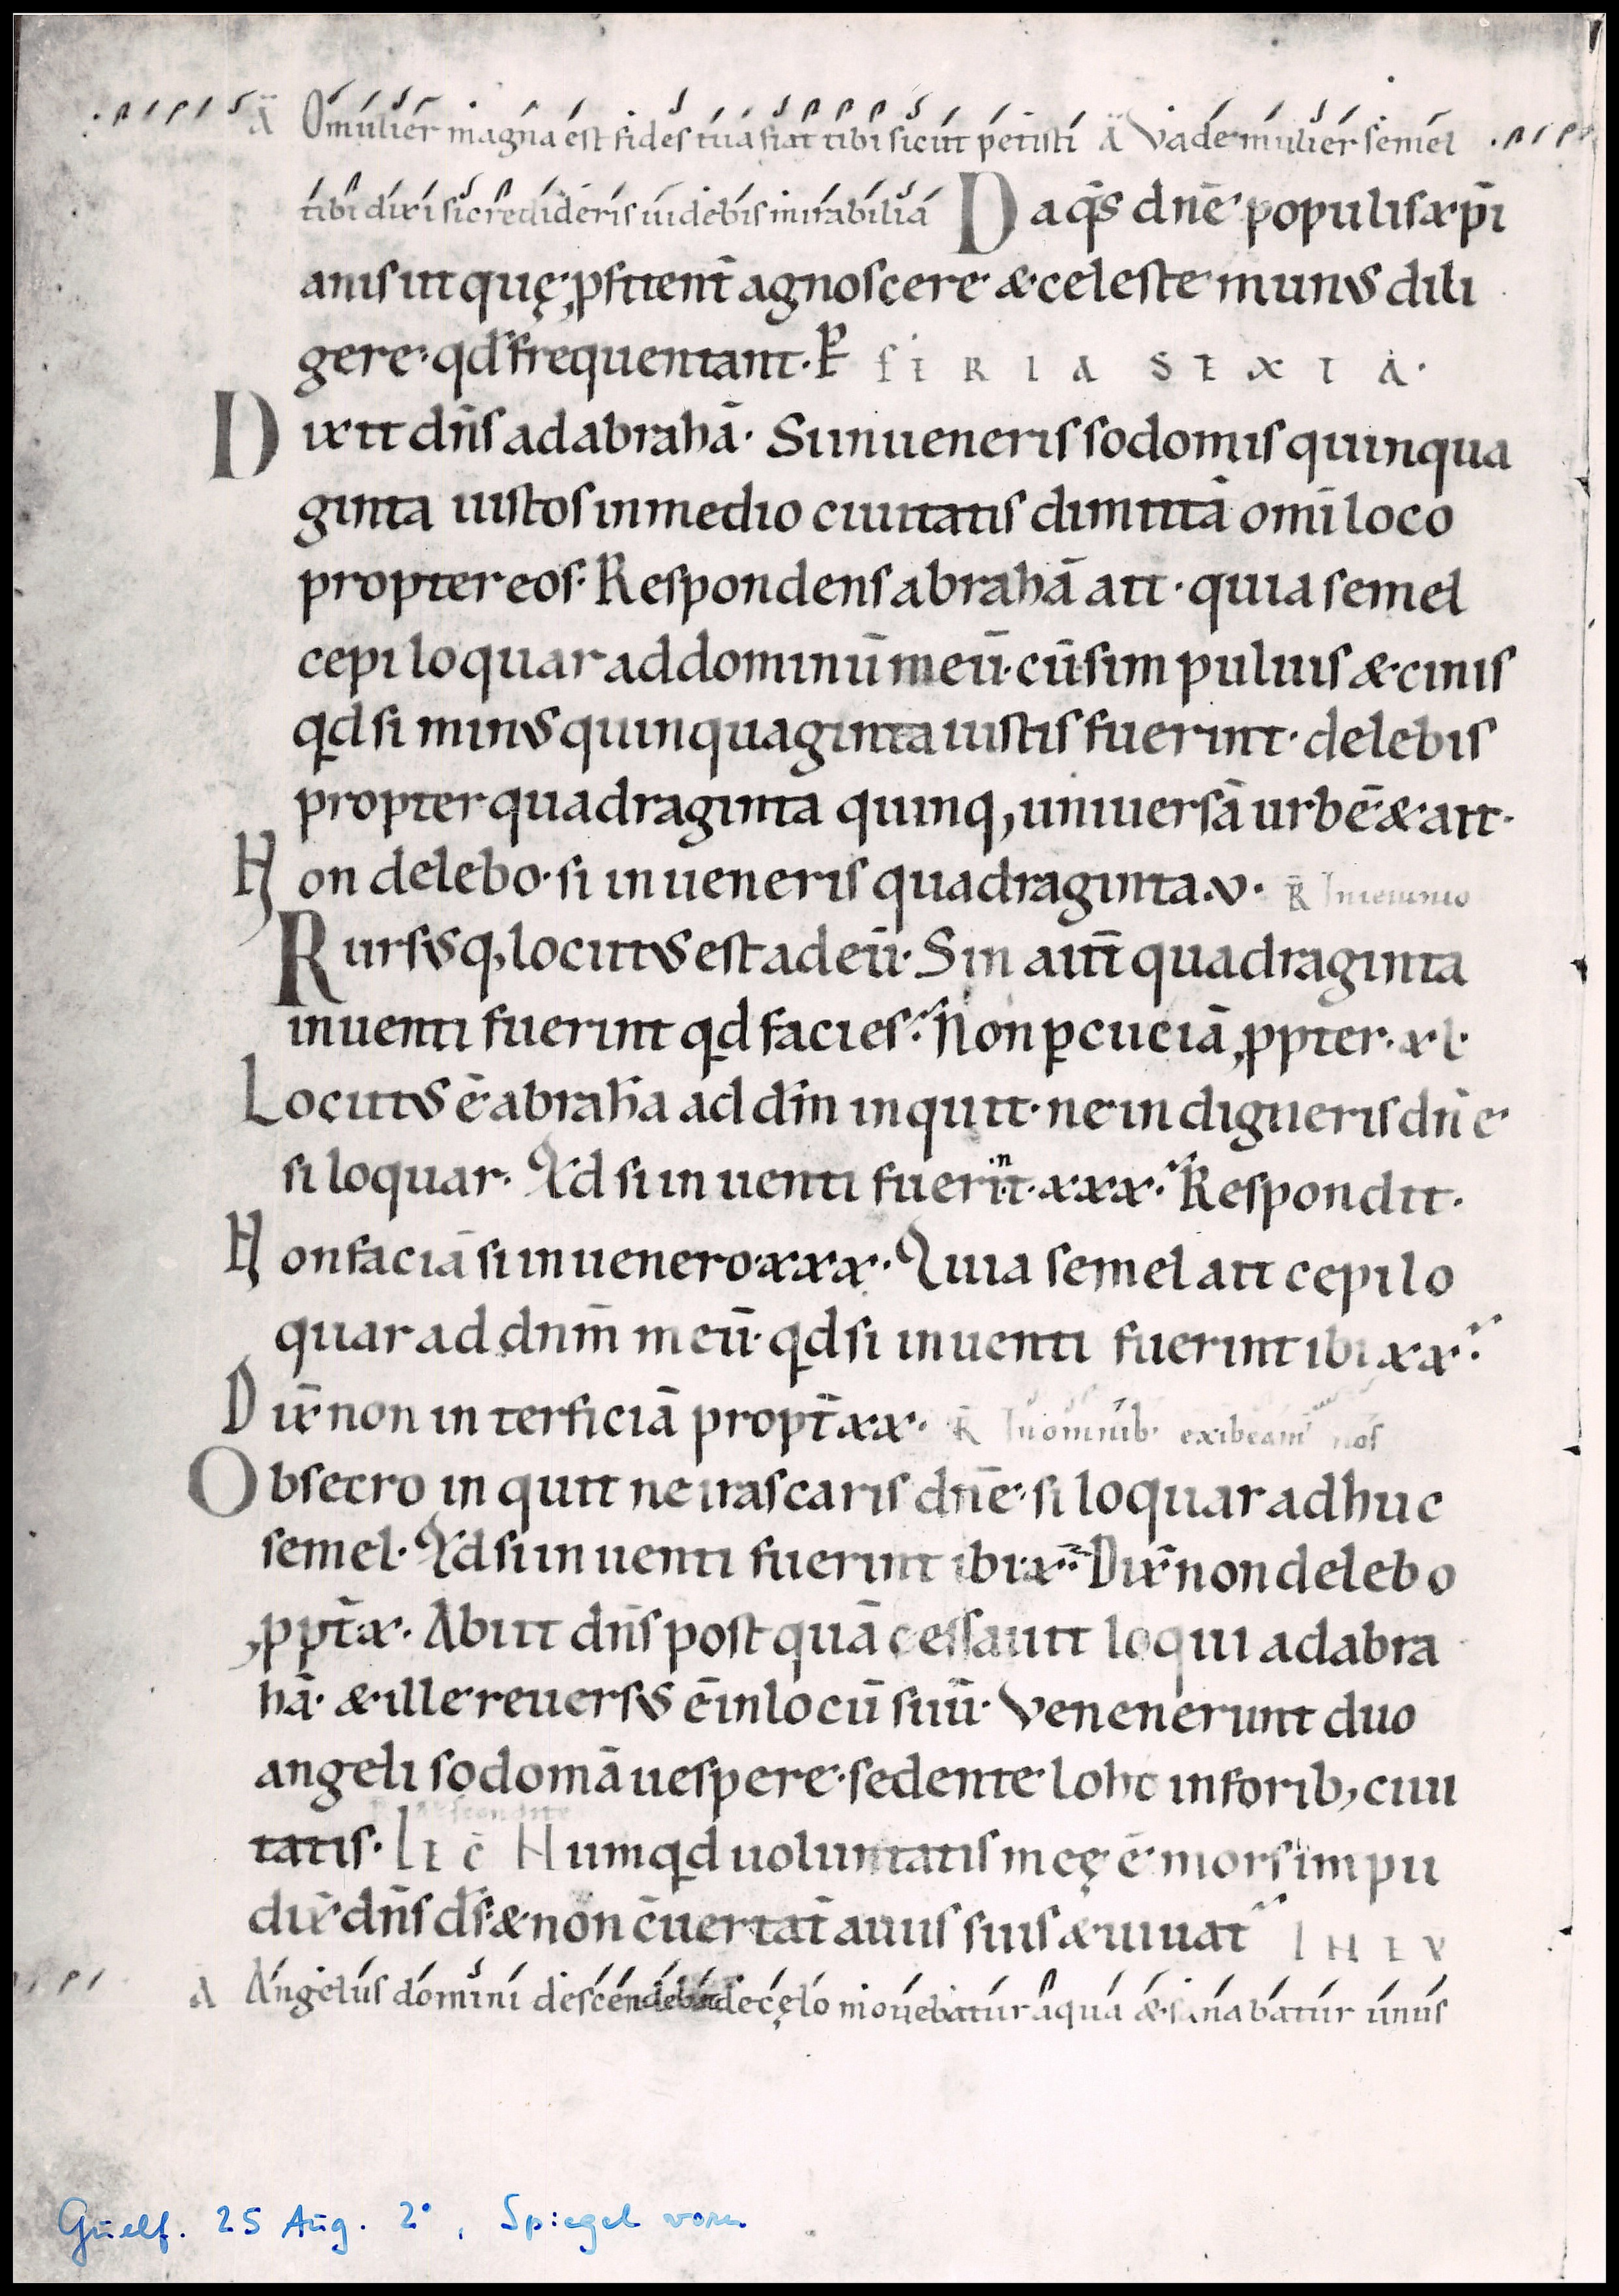 A O mulier magna est fides tua fiat tibi sicut petisti A Vade mulier semel
tibi dixi si credideris uidebis mirabilia Da q̄s dn̄e populis xp̄i
anis ut quę ꝓfitent̄ agnoscere & celeste munus dili
gere· qd̄ frequentant· P̄ FERIA SEXTA·
Dixit dn̄s ad abrahā· Si inueneris sodomis quinqua
ginta iustos in medio ciuitatis dimittā om̄i loco
propter eos· Respondens abrahā ait· quia semel
cepi loquar ad dominū meū· cū sim puluis & cinis
qd si minus quinquaginta iustis fuerint· delebis
propter quadraginta quinq, uniuersā urbē & ait·
Non delebo· si inueneris quadraginta·v· R̄ In ieiunio
Rursusq, locutus est ad eū· Sin aut̄ quadraginta
inuenti fuerint qd facies? Non ꝑcuciā ꝓpter·xl·
Locutus ē abrahā ad dn̄m inquit· ne indigneris dn̄e·
si loquar· Qd si inuenti fuerint·xxx·? Respondit·
Non faciā si inuenero·xxx· Quia semel ait cepi lo
quar ad dnm̄ meū· qd si inuenti fuerint ibi xx·?
Dix̄ non interficiā propt̄ xx· R̄ In omnib· exibeam' nos
Obsecro inquit ne irascaris dn̄e· si loquar adhuc
semel· Qd si inuenti fuerint ibi·x·? Dix̄ non delebo
ꝓpt̄ x· Abiit dn̄s post quā cessauit loqui ad abra
hā· & ille reuersus ē in locū suū· Venenerunt duo
angeli sodomā uespere· sedente loht in forib, ciui
R̄ Abscondite
tatis· LEC̄ Numqd uoluntatis meę ē mors impii
dix̄ dn̄s ds̄· & non c̄uertat̄ a uiis suis & uiuat? IN EV
A Angelus domini descendebat de cęlo mouebatur aqua & sanabatur unus
Guelf. 25 Aug. 2°, Spiegel vorn